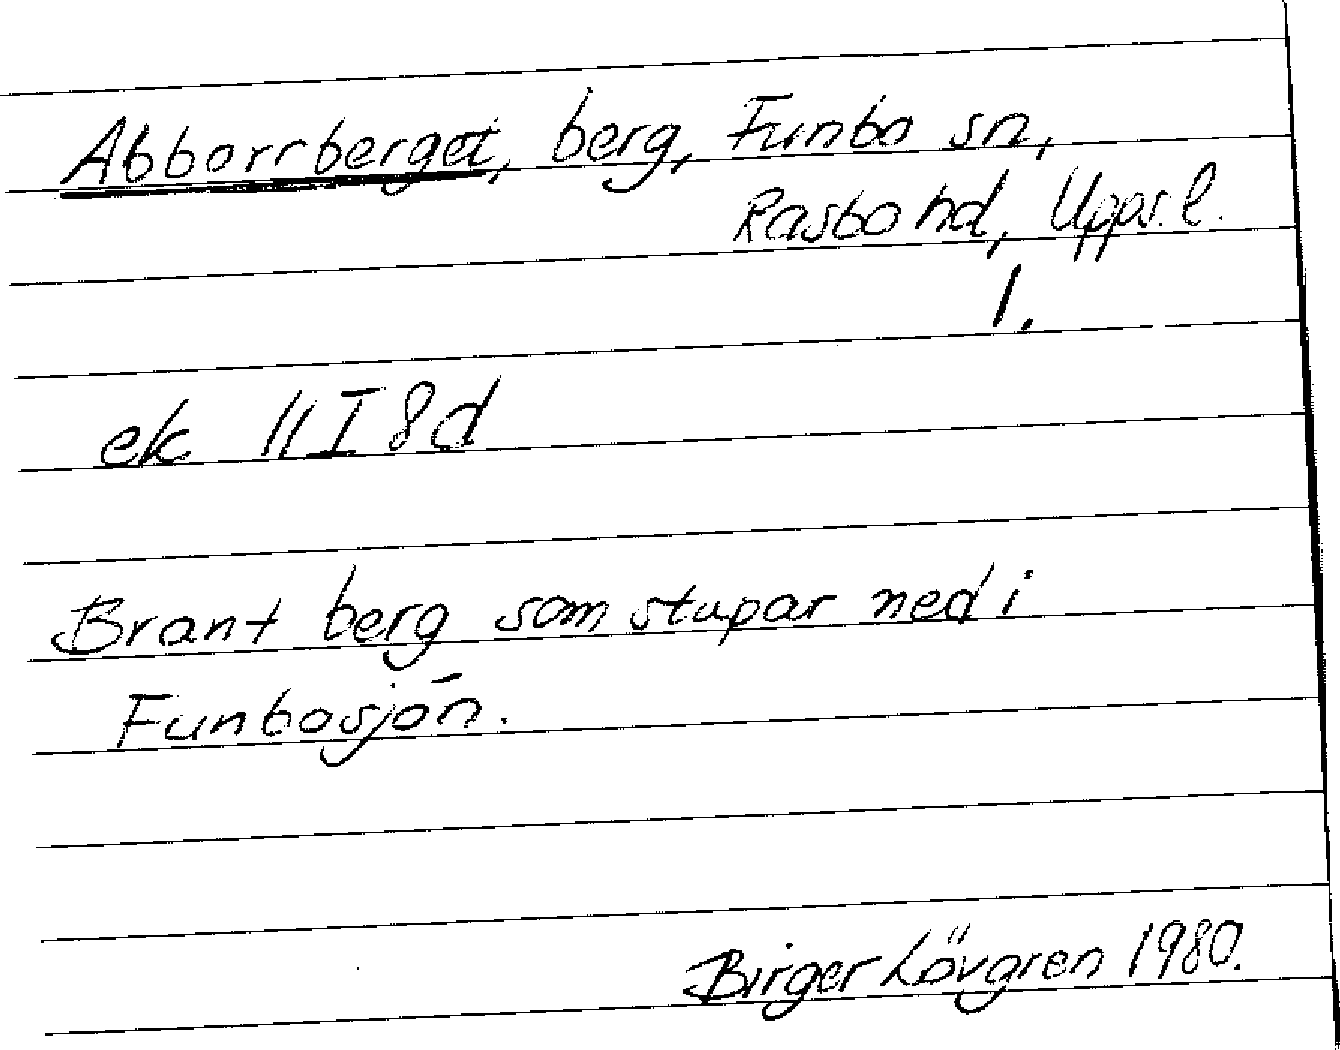 Abborrberget, berg, Funbo sn,
Rasbo hd, Uppsl.
1.
ek 11I8d
Brant berg som stupar ned i
Funbosjön.
Birger Lövgren 1980.